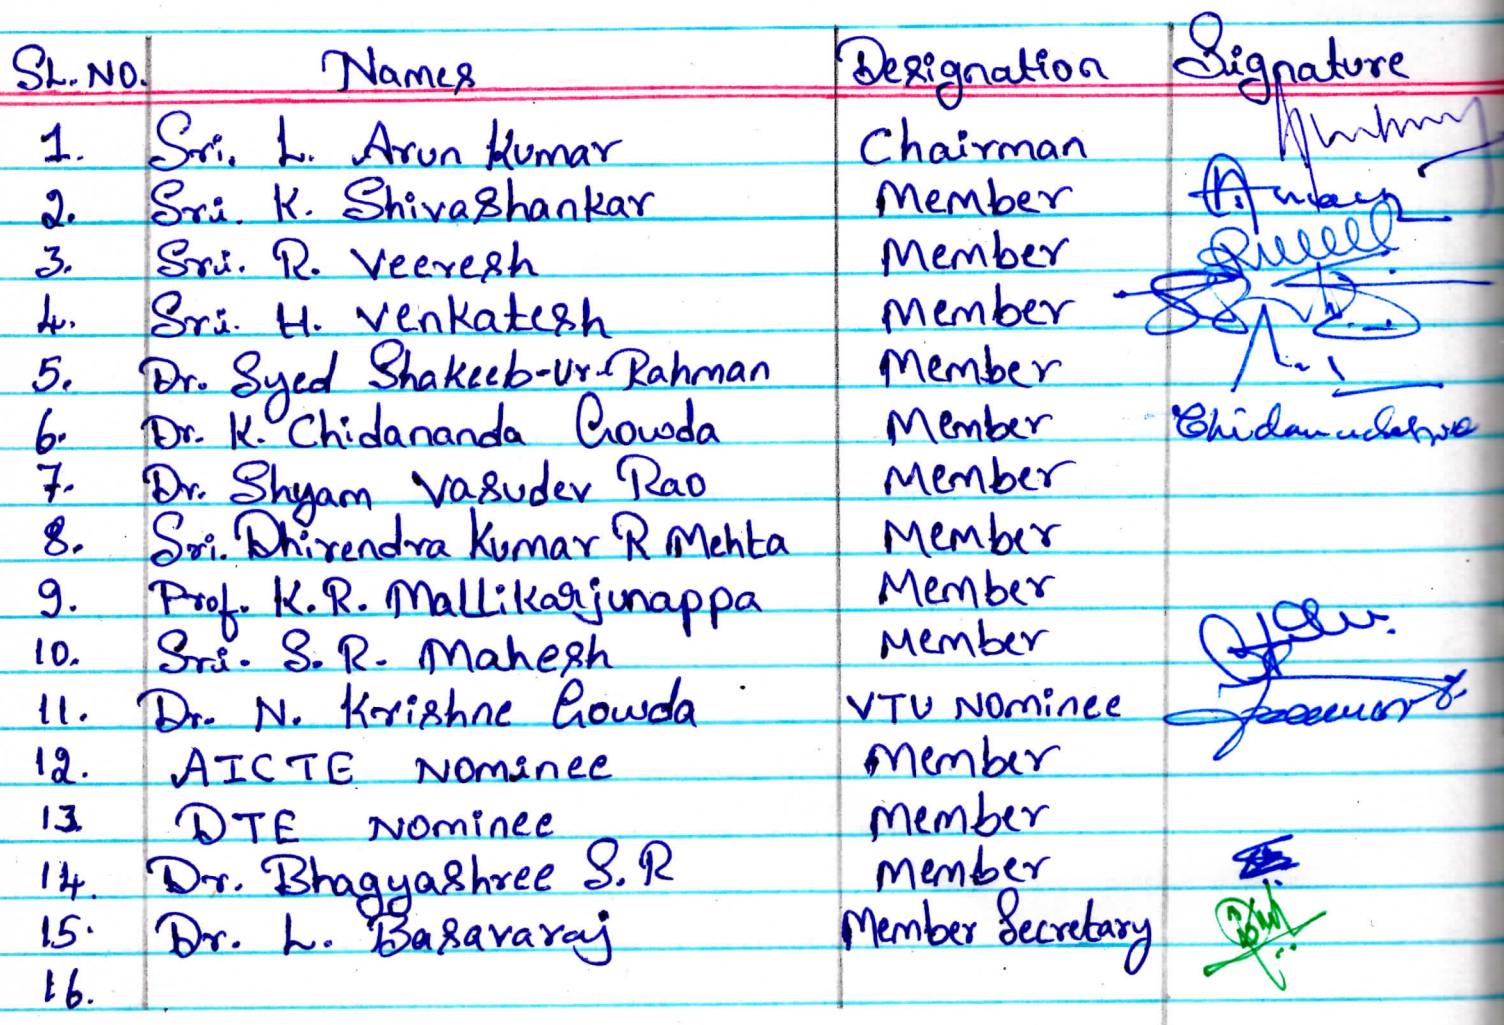 SL. NO. Names Designation Signature
1. Sri. L. Arun Kumar Chairman
2. Sri. K. Shivashankar Member
3. Sri. R. Veeresh Member
4. Sri. H. Venkatesh Member
5. Dr. Syed Shakeeb-Ur-Rahman Member
6. Dr. K. Chidananda Gowda Member
7. Dr. Shyam Vasudev Rao Member
8. Sri. Dhirendra Kumar R Mehta Member
9. Prof. K.R. Mallikarjunappa Member
10. Sri. S. R. Mahesh Member
11. Dr. N. Krishne Gowda VTU Nominee
12. AICTE Nominee Member
13. DTE Nominee Member
14. Dr. Bhagyashree S.R Member
15. Dr. L. Basavaraj Member Secretary
16.